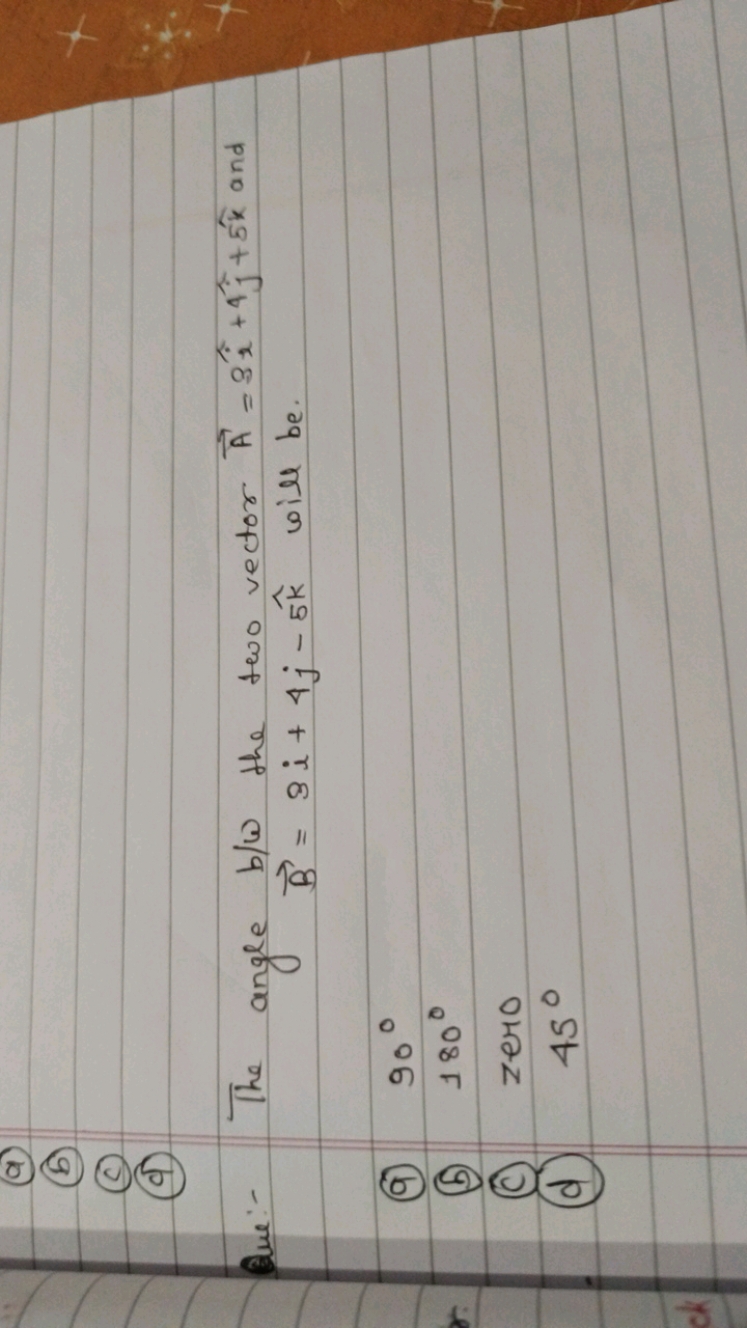 a
b
c
d
Que:- The angle b/w the two vector A⃗ = 3î + 4ĵ + 5k̂ and
B⃗ = 3i + 4j - 5k̂ will be.
a 90°
b 180°
c zero
d 45°